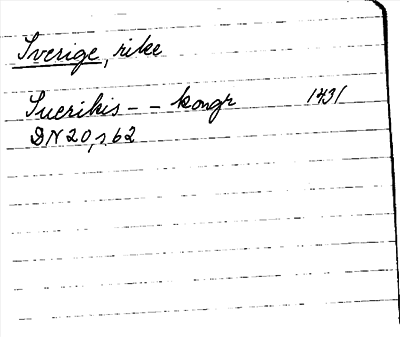 Sverige, rike
Suerikis - - kongr 1431
DN 20, s. 62